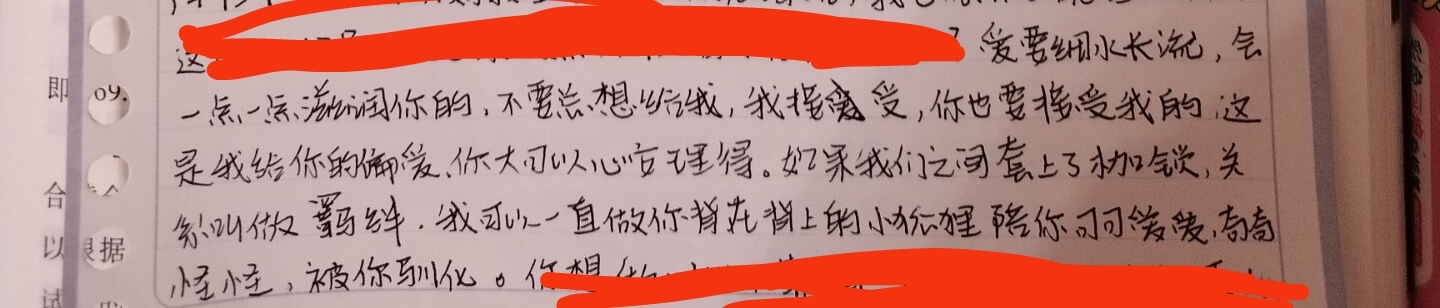 这
爱要细水长流，会
一点一点滋润你的，不要总想给我，我接受，你也要接受我的，这
是我给你的偏爱，你大可以心安理得。如果我们之间套上了枷锁，关
系叫做羁绊．我可以一直做你背在背上的小狐狸陪你可可爱爱，奇奇
怪怪，被你驯化。你想做
即
09.
合
以
根据
试